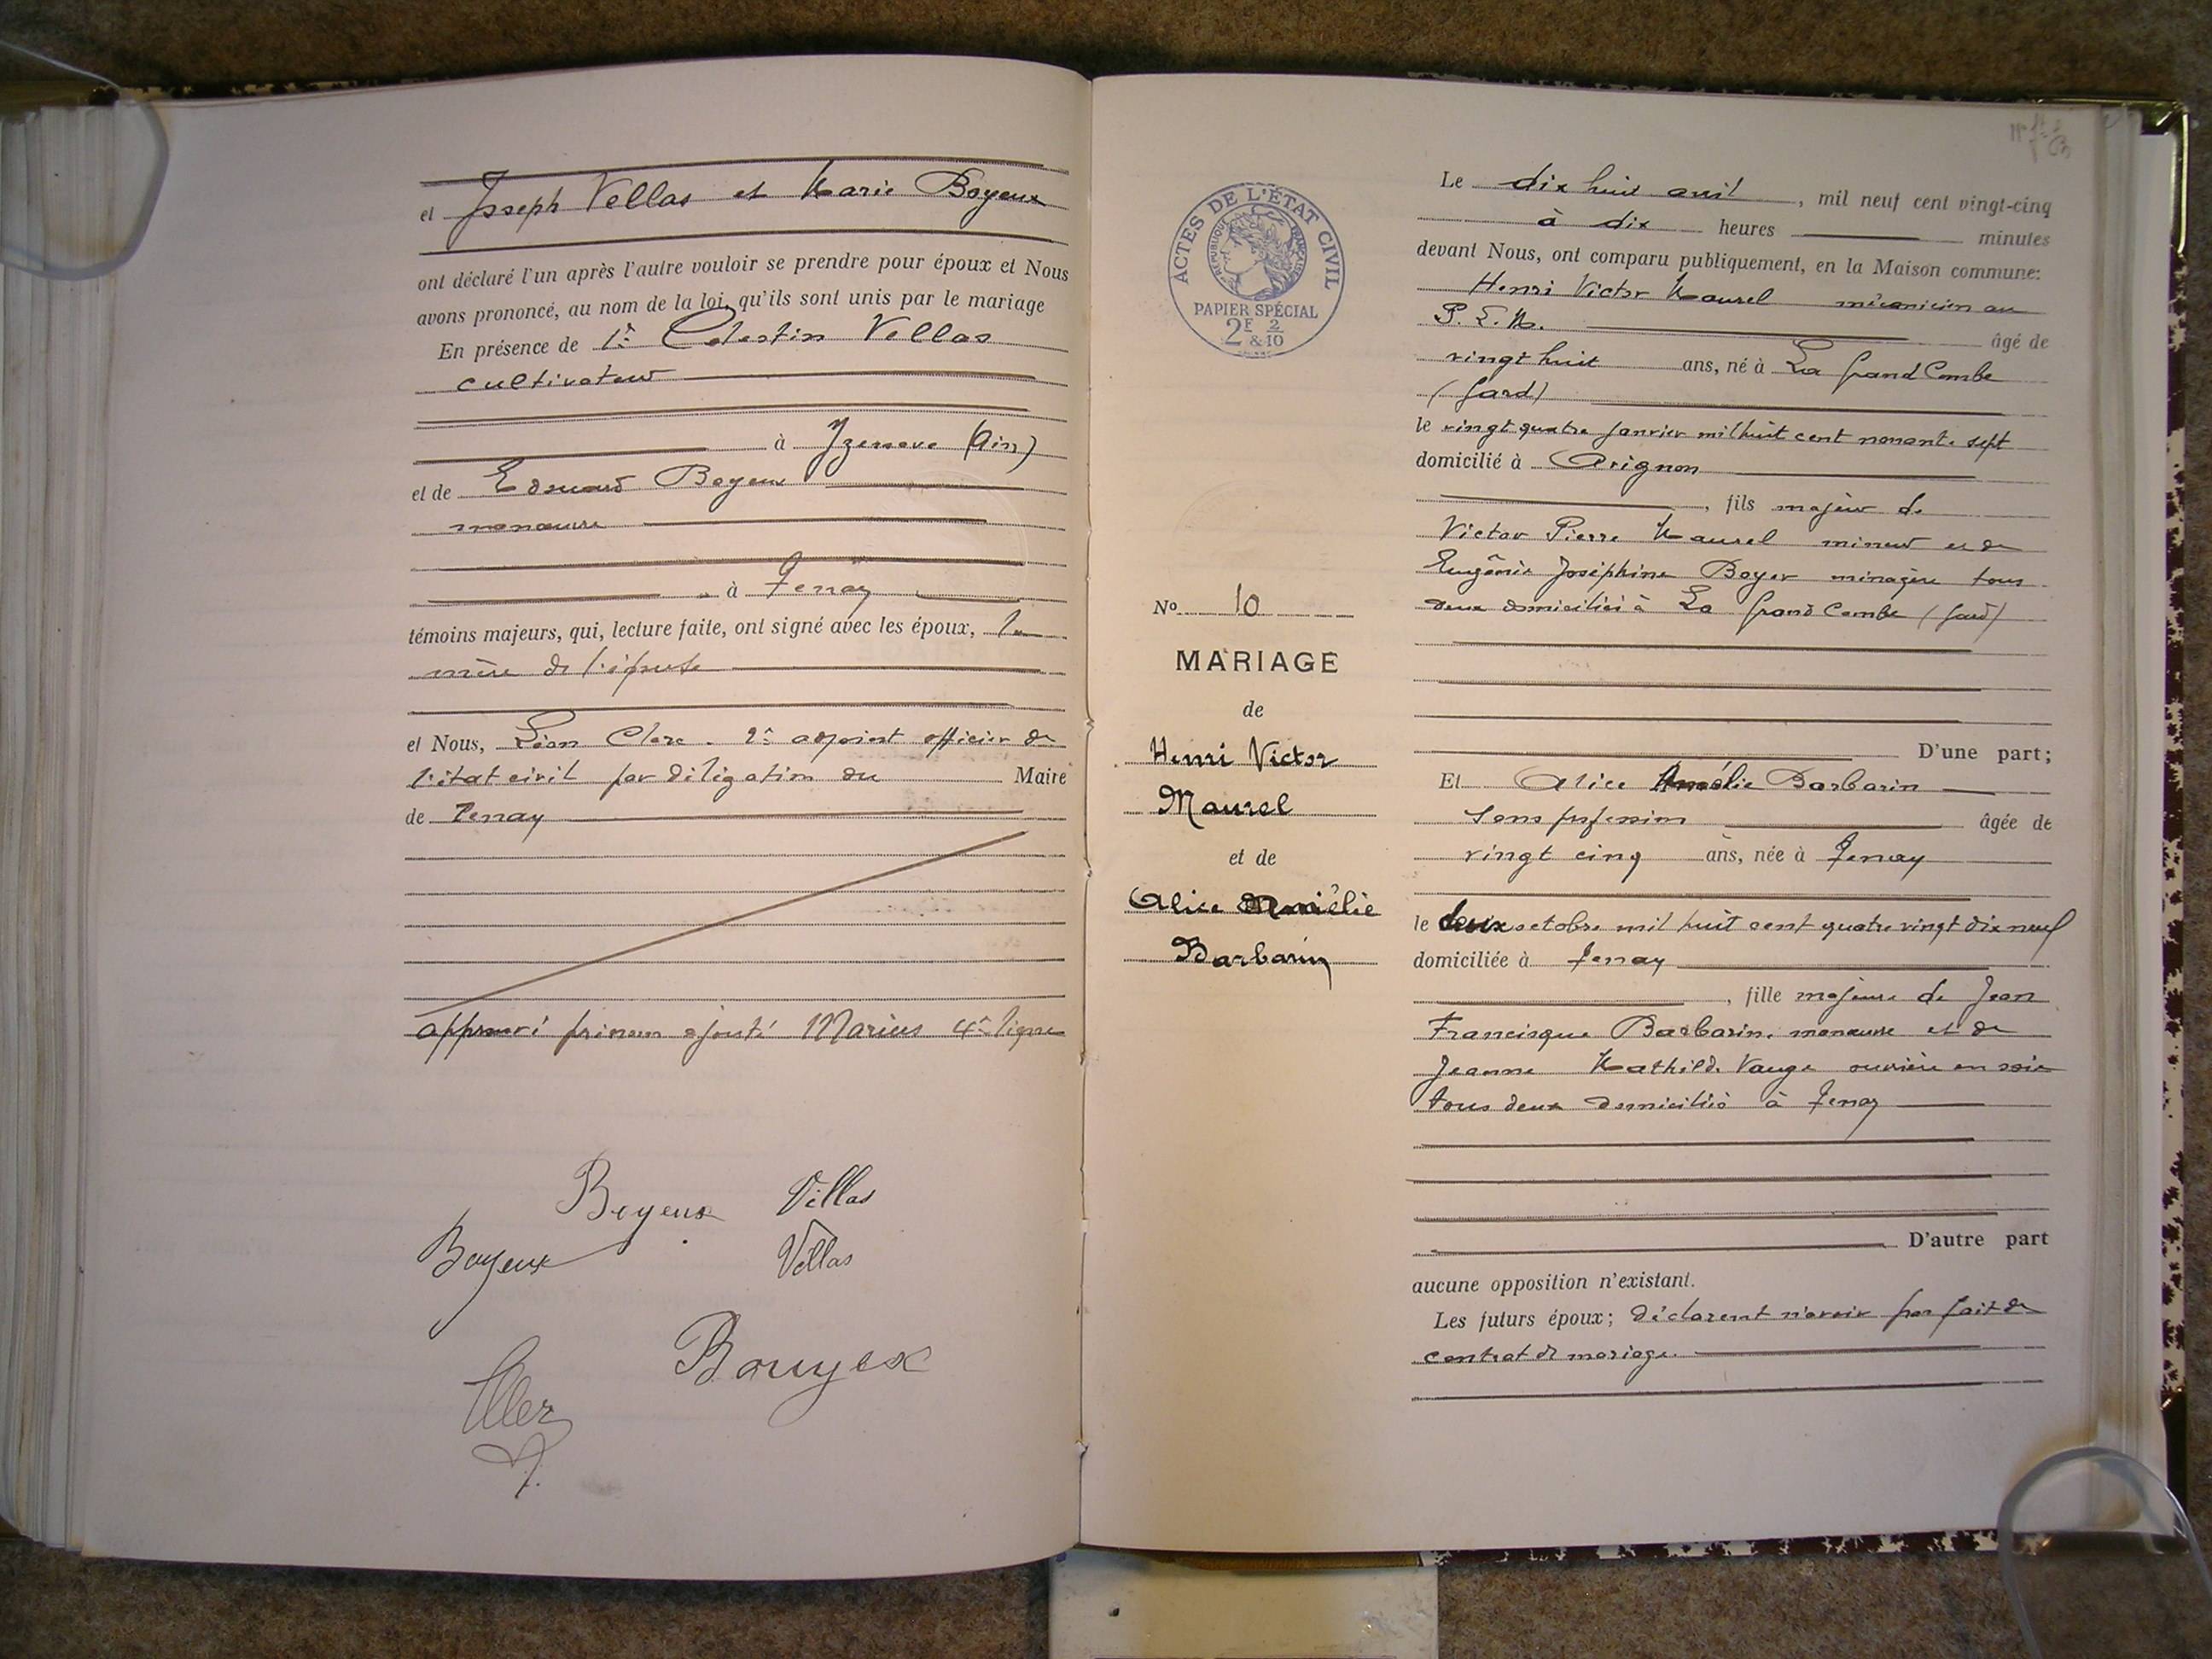 et Joseph Vellas et Marie Boyeux
ont déclaré l'un après l'autre vouloir se prendre pour époux et Nous
avons prononcé, au nom de la loi, qu'ils sont unis par le mariage
En présence de 1° Célestin Vellas
cultivateur
à Izernore (Ain)
et de Edouard Boyeux
manœuvre
à Tenay
témoins majeurs, qui, lecture faite, ont signé avec les époux, la
mère de l'épouse
et Nous, Léon Clerc. 2e adjoint officier de
l'état civil par délégation du Maire
de Tenay
approuvé prénom ajouté Marius 4e ligne
Boyeux Vellas
Boyeux Vellas
Bouyex
ACTES DE L'ÉTAT CIVIL
RÉPUBLIQUE FRANÇAISE
PAPIER SPÉCIAL
2F 2
& 10
No 10
MARIAGE
de
Henri Victor
Maurel
et de
Alice Amélie
Barbarin
Le dix huit avril, mil neuf cent vingt-cinq
à dix heures minutes
devant Nous, ont comparu publiquement, en la Maison commune:
Henri Victor Maurel mécanicien au
P. L. M. âgé de
vingt huit ans, né à La Grand Combe
(Gard)
le vingt quatre Janvier mil huit cent nonante sept
domicilié à Avignon
, fils majeur de
Victor Pierre Maurel mineur et de
Eugénie Joséphine Boyer ménagère tous
deux domiciliés à La Grand Combe (Gard)
D'une part;
Et Alice Amélie Barbarin
Sans profession âgée de
vingt cinq ans, née à Tenay
le deux octobre mil huit cent quatre vingt dix neuf
domiciliée à Tenay
, fille majeure de Jean
Francisque Barbarin, manœuvre et de
Jeanne Mathilde Vauge ouvrière en soie
tous deux domiciliés à Tenay
D'autre part
aucune opposition n'existant.
Les futurs époux; déclarent n'avoir pas fait de
contrat de mariage.